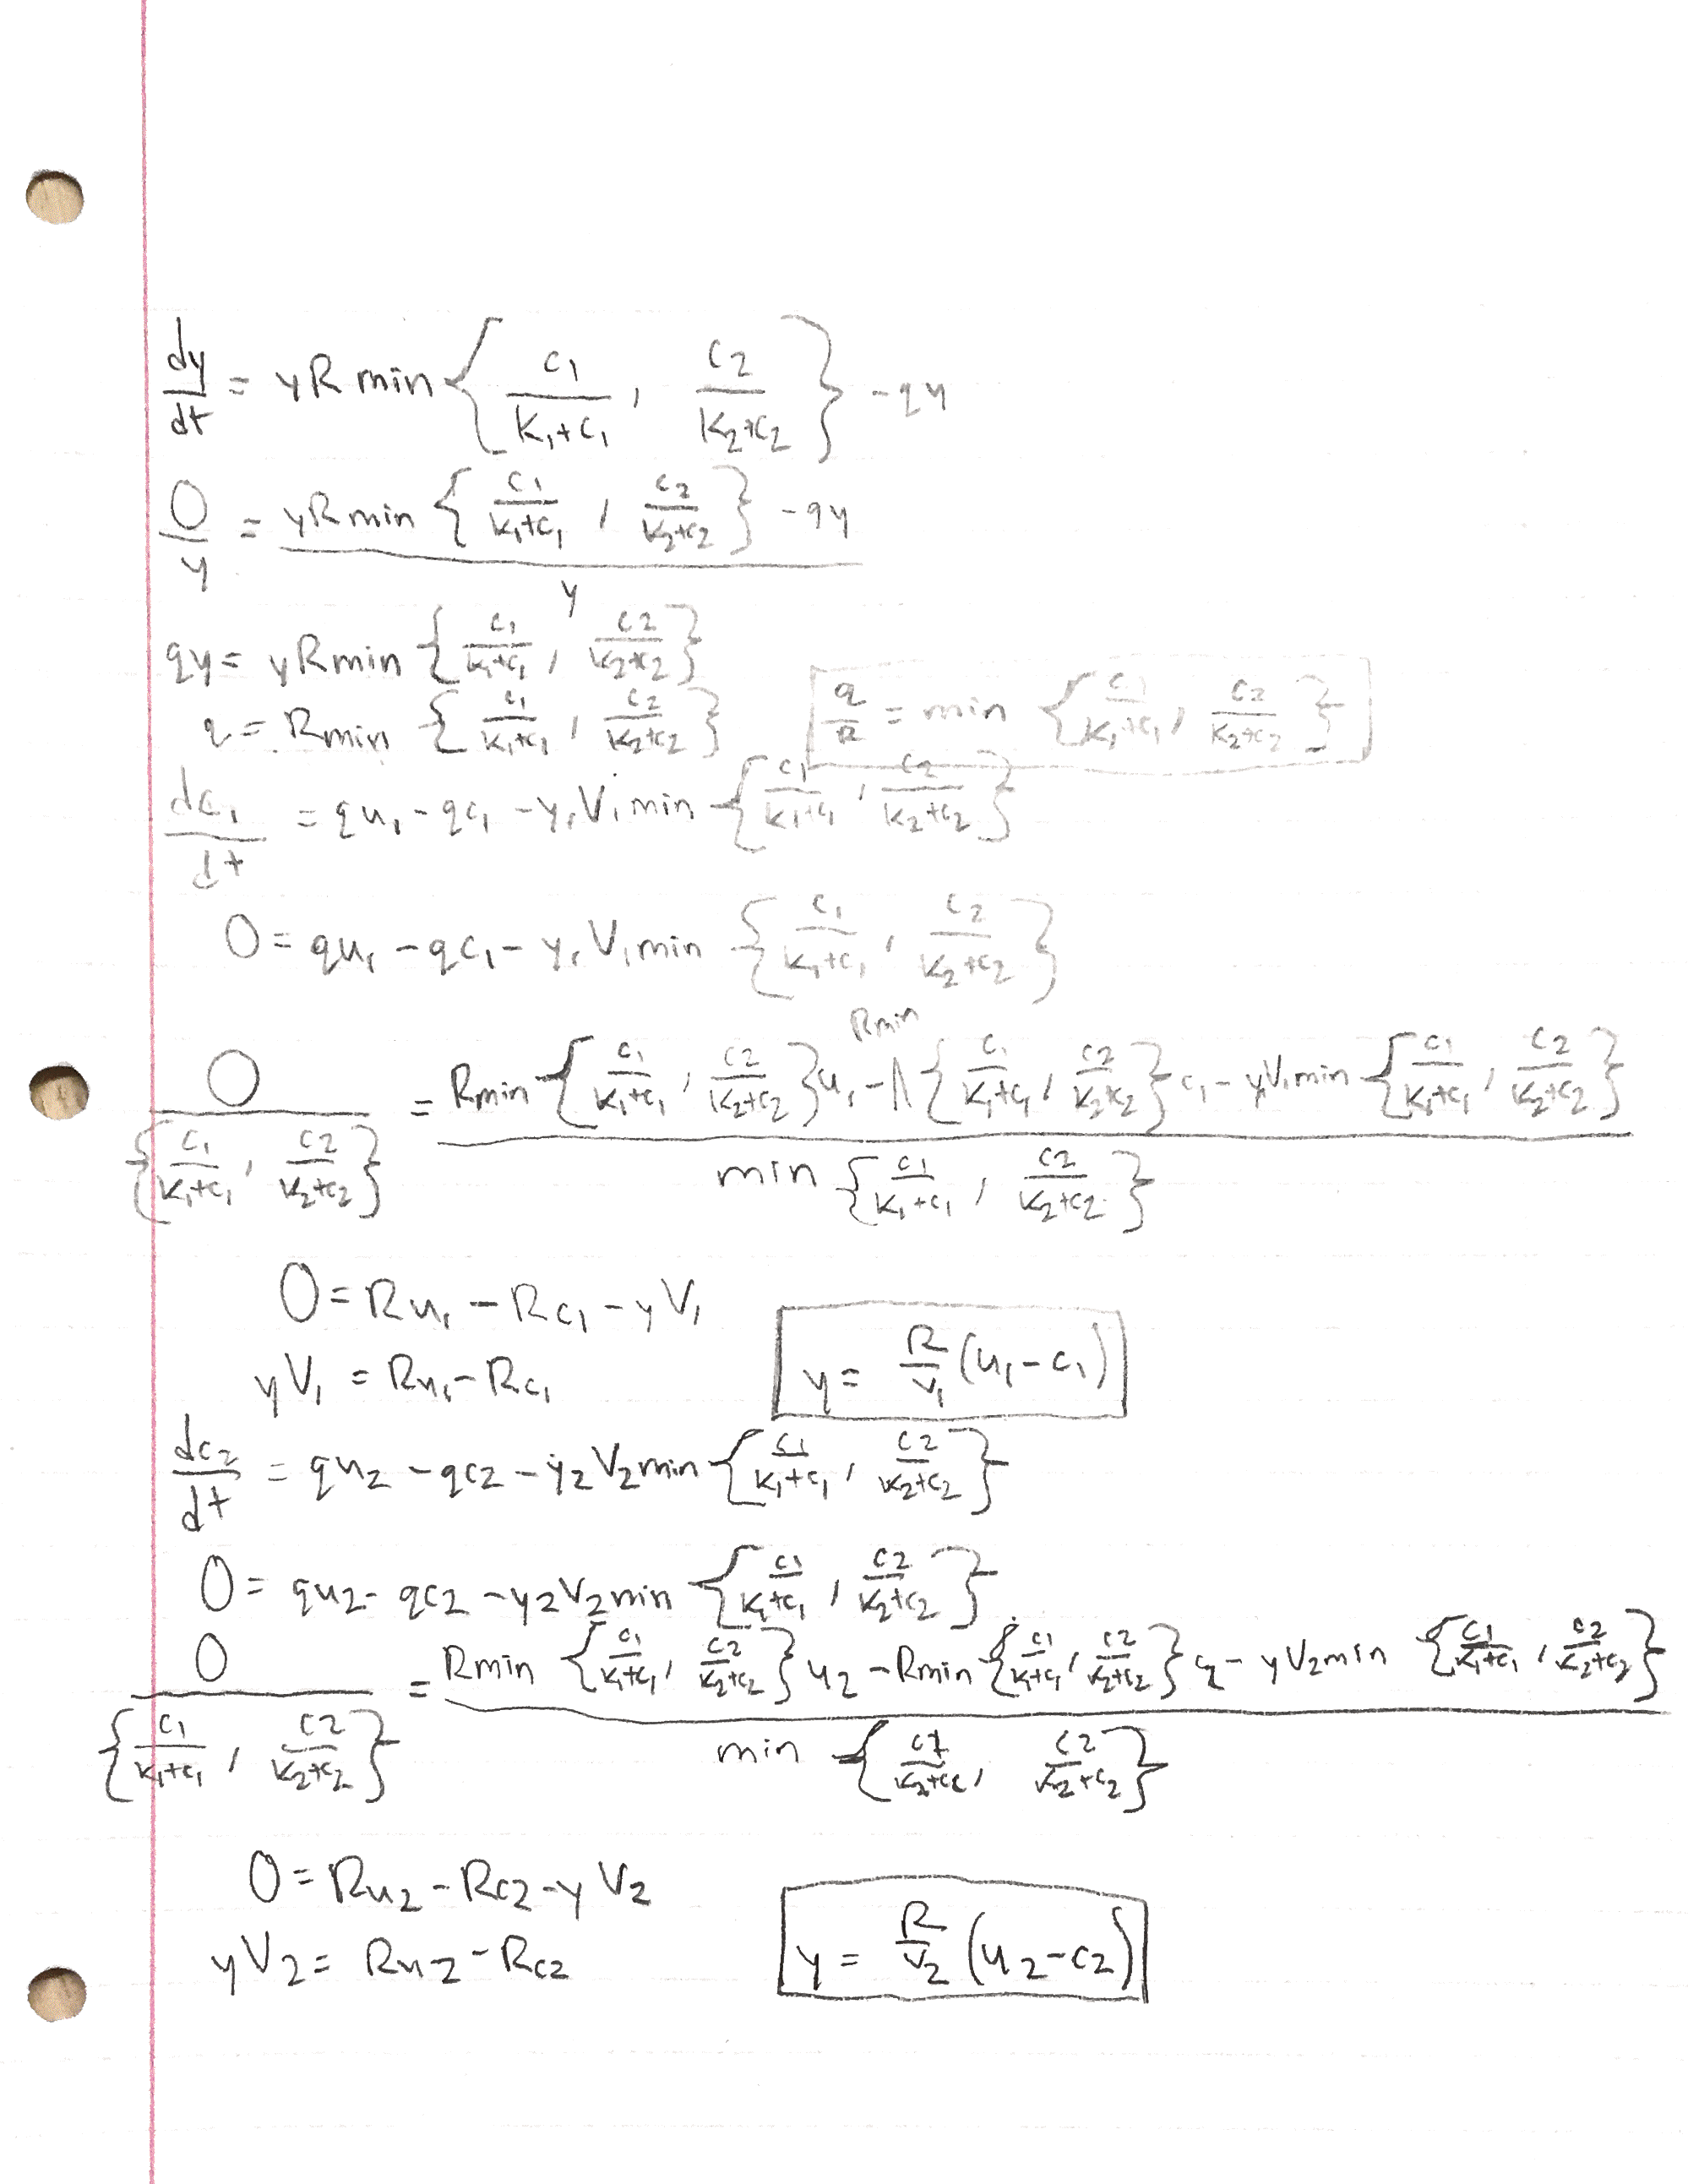 dy/dt = yR min { c₁/(K₁+c₁) , c₂/(K₂+c₂) } - qy
0/y = (yR min { c₁/(K₁+c₁) , c₂/(K₂+c₂) } - qy)/y
qy = yR min { c₁/(K₁+c₁) , c₂/(K₂+c₂) }
q = R min { c₁/(K₁+c₁) , c₂/(K₂+c₂) }
q/R = min { c₁/(K₁+c₁) , c₂/(K₂+c₂) }
dc₁/dt = qu₁ - qc₁ - y₁V₁ min { c₁/(K₁+c₁) , c₂/(K₂+c₂) }
0 = qu₁ - qc₁ - y₁V₁ min { c₁/(K₁+c₁) , c₂/(K₂+c₂) }
0/{ c₁/(K₁+c₁) , c₂/(K₂+c₂) } = (R min { c₁/(K₁+c₁) , c₂/(K₂+c₂) } u₁ - R min { c₁/(K₁+c₁) , c₂/(K₂+c₂) } c₁ - yV₁ min { c₁/(K₁+c₁) , c₂/(K₂+c₂) })/(min { c₁/(K₁+c₁) , c₂/(K₂+c₂) })
0 = Ru₁ - Rc₁ - yV₁
yV₁ = Ru₁ - Rc₁
y = R/V₁ (u₁ - c₁)
dc₂/dt = qu₂ - qc₂ - y₂V₂ min { c₁/(K₁+c₁) , c₂/(K₂+c₂) }
0 = qu₂ - qc₂ - y₂V₂ min { c₁/(K₁+c₁) , c₂/(K₂+c₂) }
0/{ c₁/(K₁+c₁) , c₂/(K₂+c₂) } = (R min { c₁/(K₁+c₁) , c₂/(K₂+c₂) } u₂ - R min { c₁/(K₁+c₁) , c₂/(K₂+c₂) } c₂ - yV₂ min { c₁/(K₁+c₁) , c₂/(K₂+c₂) })/(min { , c₂/(K₂+c₂) })
0 = Ru₂ - Rc₂ - yV₂
yV₂ = Ru₂ - Rc₂
y = R/V₂ (u₂ - c₂)